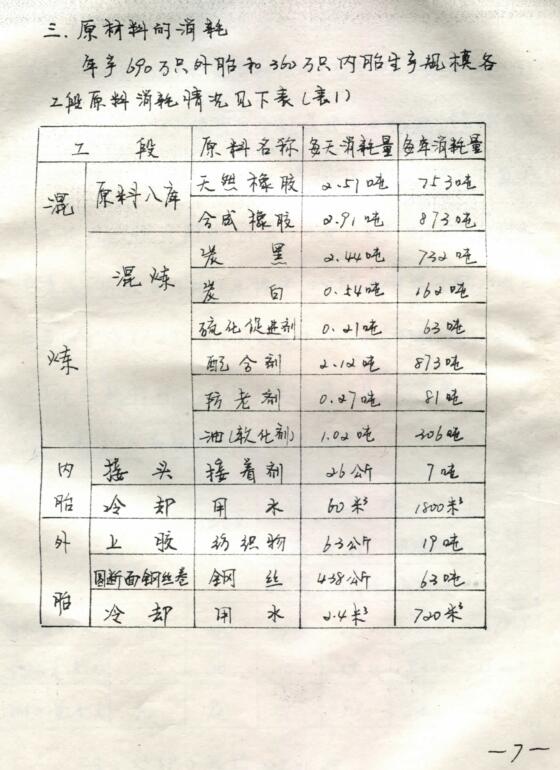 三. 原材料的消耗
年产690万只外胎和360万只内胎生产规模各
工段原料消耗情况见下表(表1)
工 段 原料名称 每天消耗量 每年消耗量
混炼 原料入库 天然橡胶 2.51吨 753吨
合成橡胶 2.91吨 873吨
混炼 炭黑 2.44吨 732吨
炭白 0.54吨 162吨
硫化促进剂 0.21吨 63吨
配合剂 2.12吨 873吨
防老剂 0.27吨 81吨
油(软化剂) 1.02吨 306吨
内胎 接头 接着剂 26公斤 7吨
冷却 用水 60米³ 1800米³
外胎 上胶 纺织物 63公斤 19吨
园断面钢丝卷 钢丝 438公斤 63吨
冷却 用水 2.4米³ 720米³
—7—